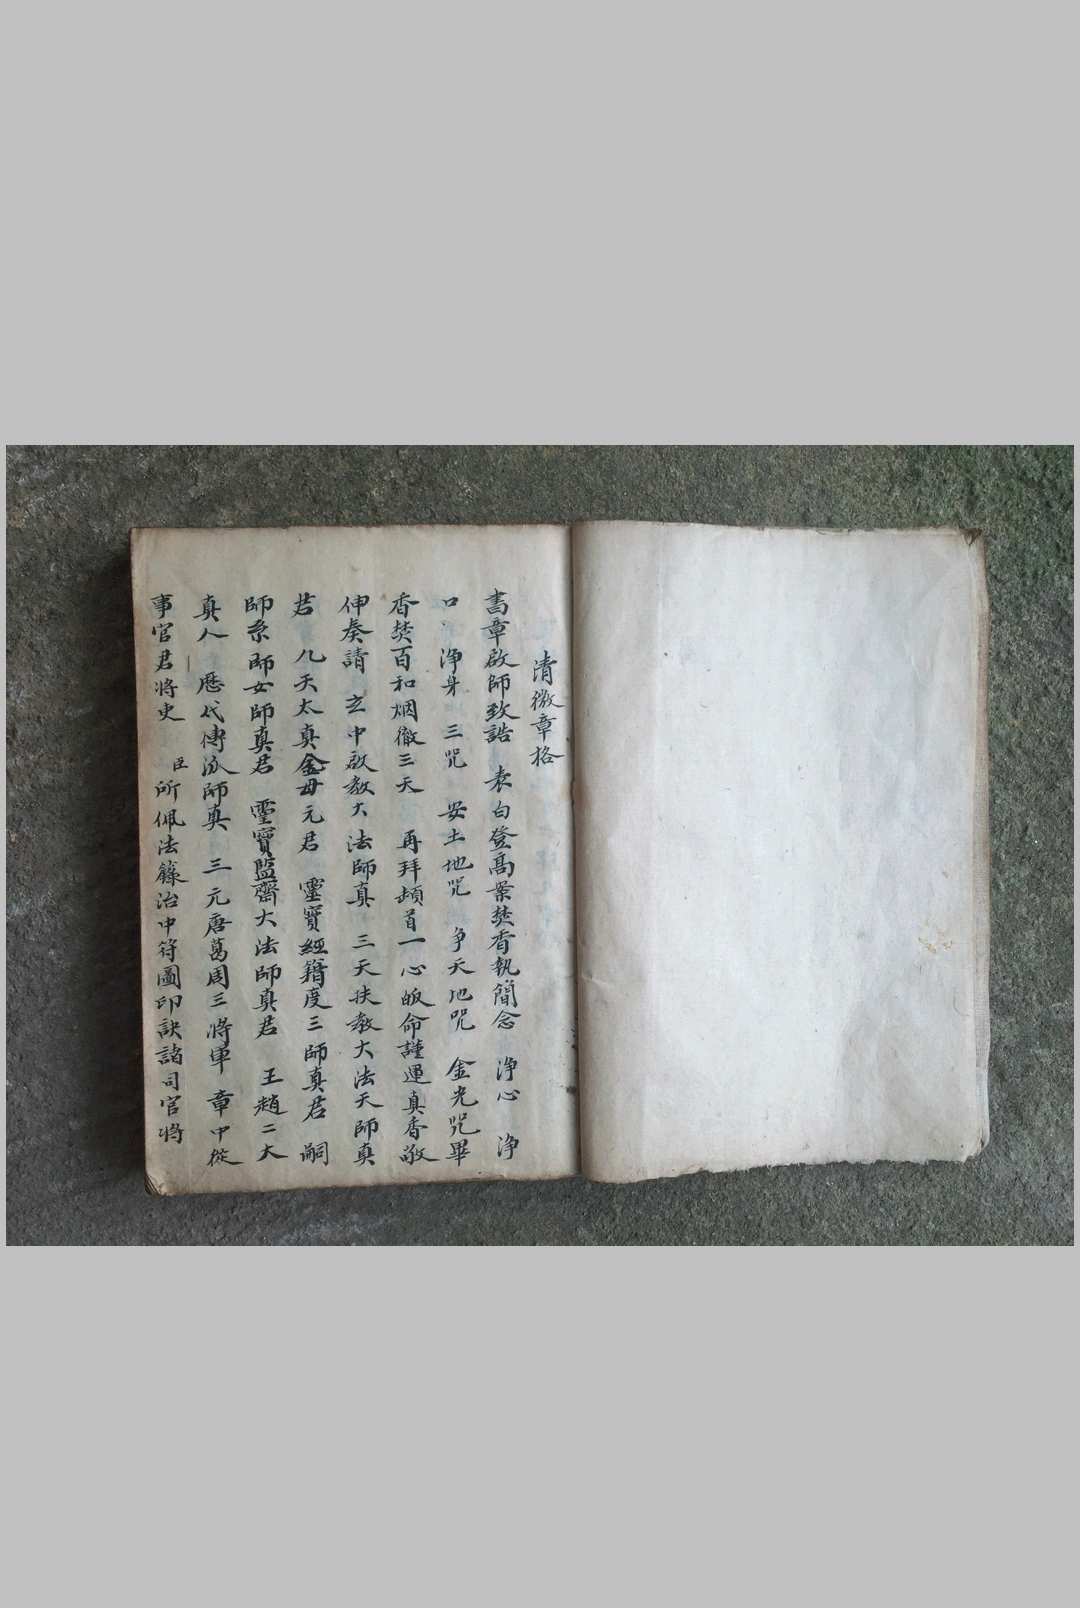 清微章格
書章啟師致誥　表白登高案焚香執簡念　淨心　淨
口　淨身　三咒　安土地咒　净天地咒　金光咒畢
香焚百和烟徹三天　再拜頓首一心皈命謹運真香敬
伸奏請　玄中啟教大法師真　三天扶教大法天師真
君　九天太真金母元君　靈寶經籍度三師真君　嗣
師系師女師真君　靈寶監齋大法師真君　王趙二大
真人　歷代傳派師真　三元唐葛周三將軍　章中從
事官君將吏　臣所佩法籙治中符圖印訣諸司官將